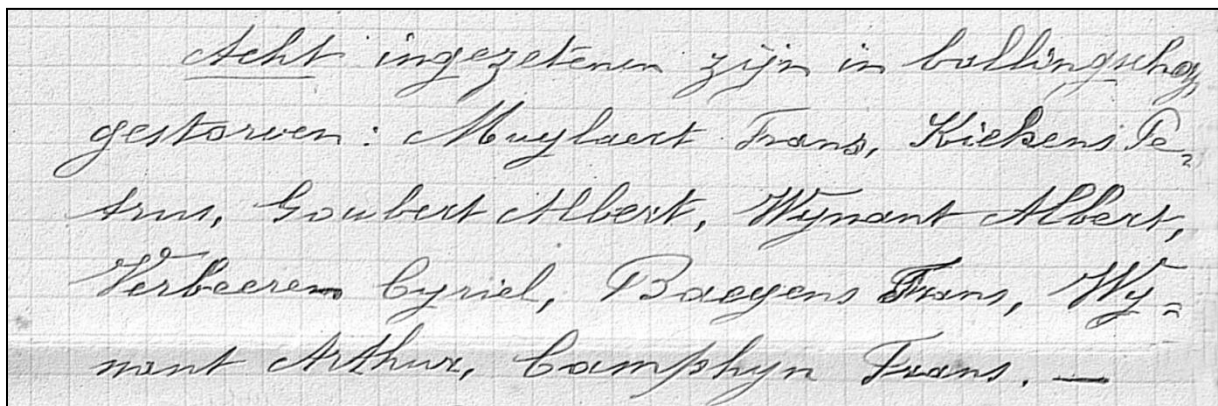 Acht ingezetenen zijn in ballingschap
gestorven: Muylaert Frans, Kiekens Pe=
trus, Goubert Albert, Wynant Albert,
Verbeeren Cyriel, Baeyens Frans, Wy=
nant Arthur, Camphyn Frans. —